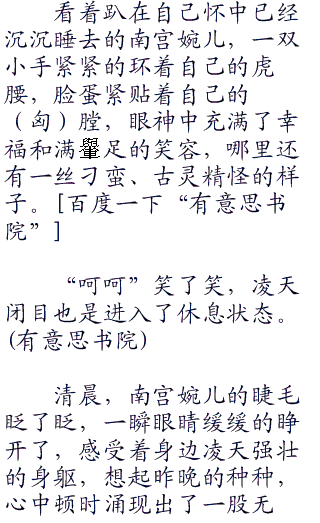 看着趴在自己怀中已经
沉沉睡去的南宫婉儿，一双
小手紧紧的环着自己的虎
腰，脸蛋紧贴着自己的
（匈）膛，眼神中充满了幸
福和满足的笑容，哪里还
有一丝刁蛮、古灵精怪的样
子。[百度一下“有意思书
院”]
“呵呵”笑了笑，凌天
闭目也是进入了休息状态。
(有意思书院)
清晨，南宫婉儿的睫毛
眨了眨，一瞬眼睛缓缓的睁
开了，感受着身边凌天强壮
的身躯，想起昨晚的种种，
心中顿时涌现出了一股无